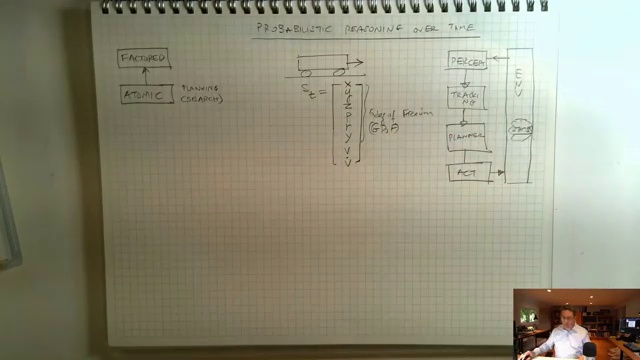 PROBABILISTIC REASONING OVER TIME
FACTORED
ATOMIC
PLANNING
(SEARCH)
St =
x
y
z
p
r
y
v
v̇
of Freedom
PERCEP
TRACK
ING
PLANNER
ACT
ENV
STATE